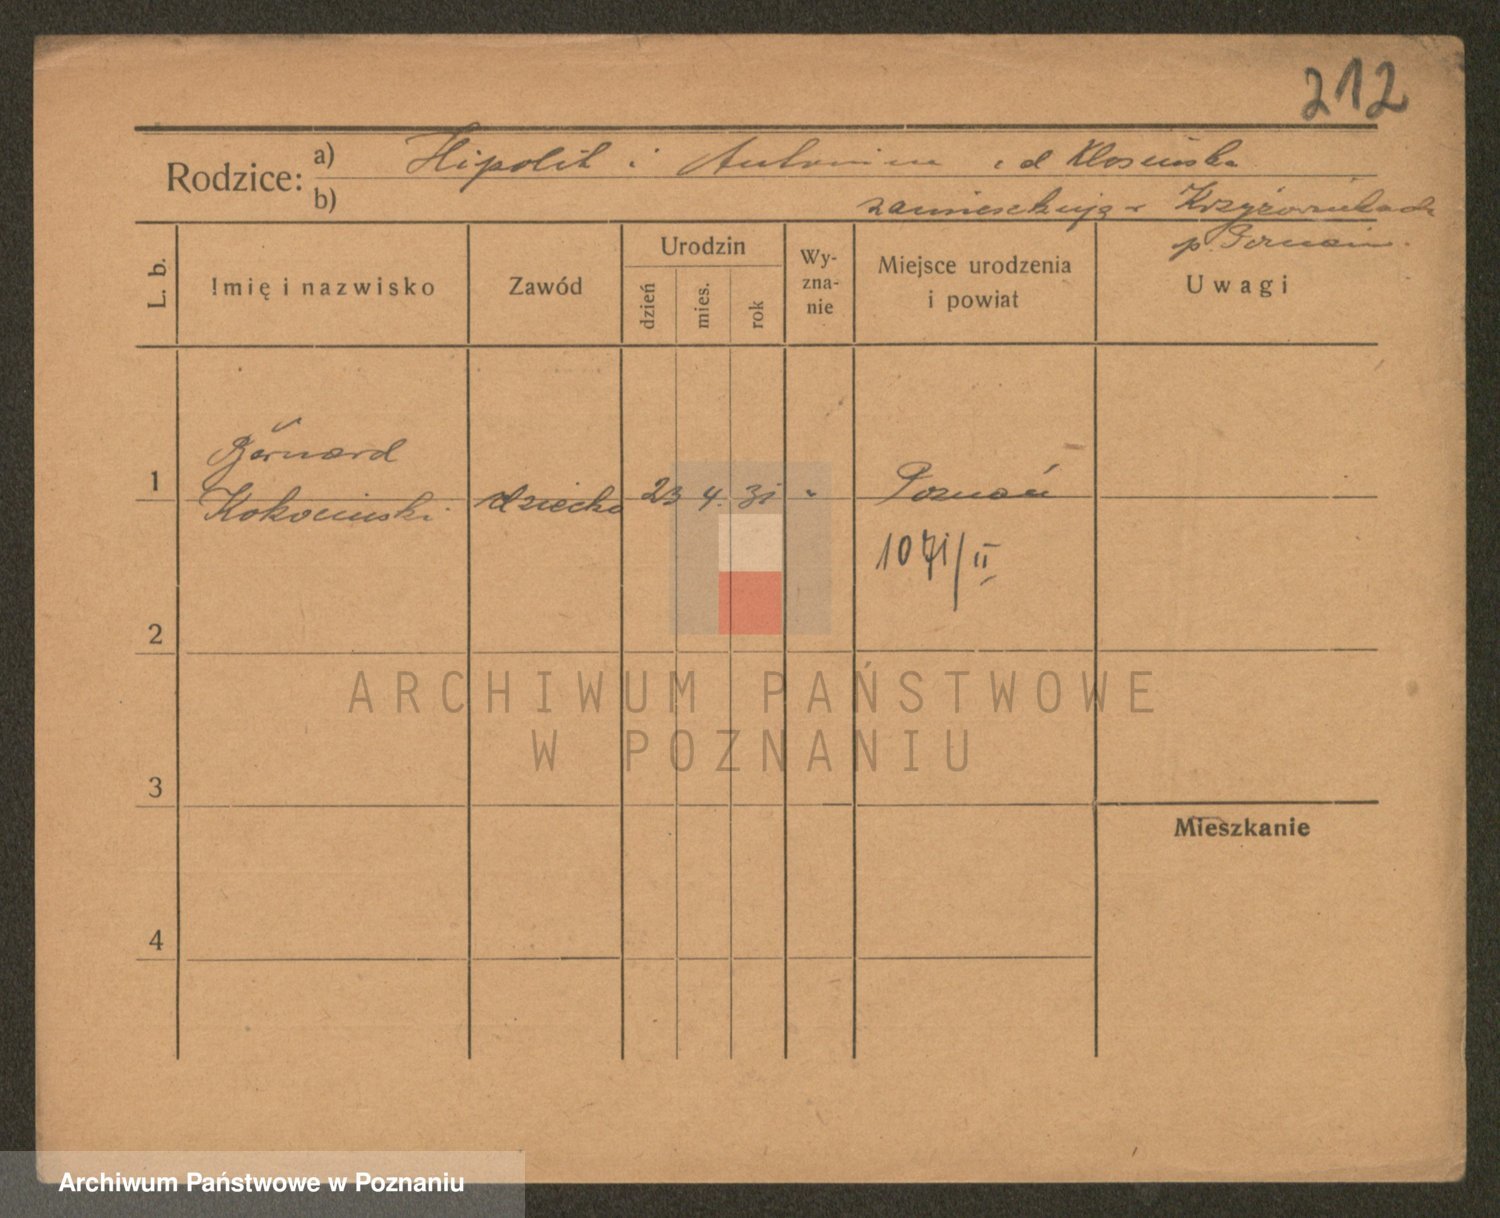 212
Rodzice:
a) Hipolit i Antonina z d Kłosińska
b) zamieszkują w Krzyżownikach
p. Poznań.
L. b.
Imię i nazwisko
Zawód
Urodzin
dzień
mies.
rok
Wy-
zna-
nie
Miejsce urodzenia
i powiat
Uwagi
1
Bernard
Kokociński
dziecko
23 4. 31 "
Poznań
1071/II
2
3
4
Mieszkanie
ARCHIWUM PAŃSTWOWE
W POZNANIU
Archiwum Państwowe w Poznaniu